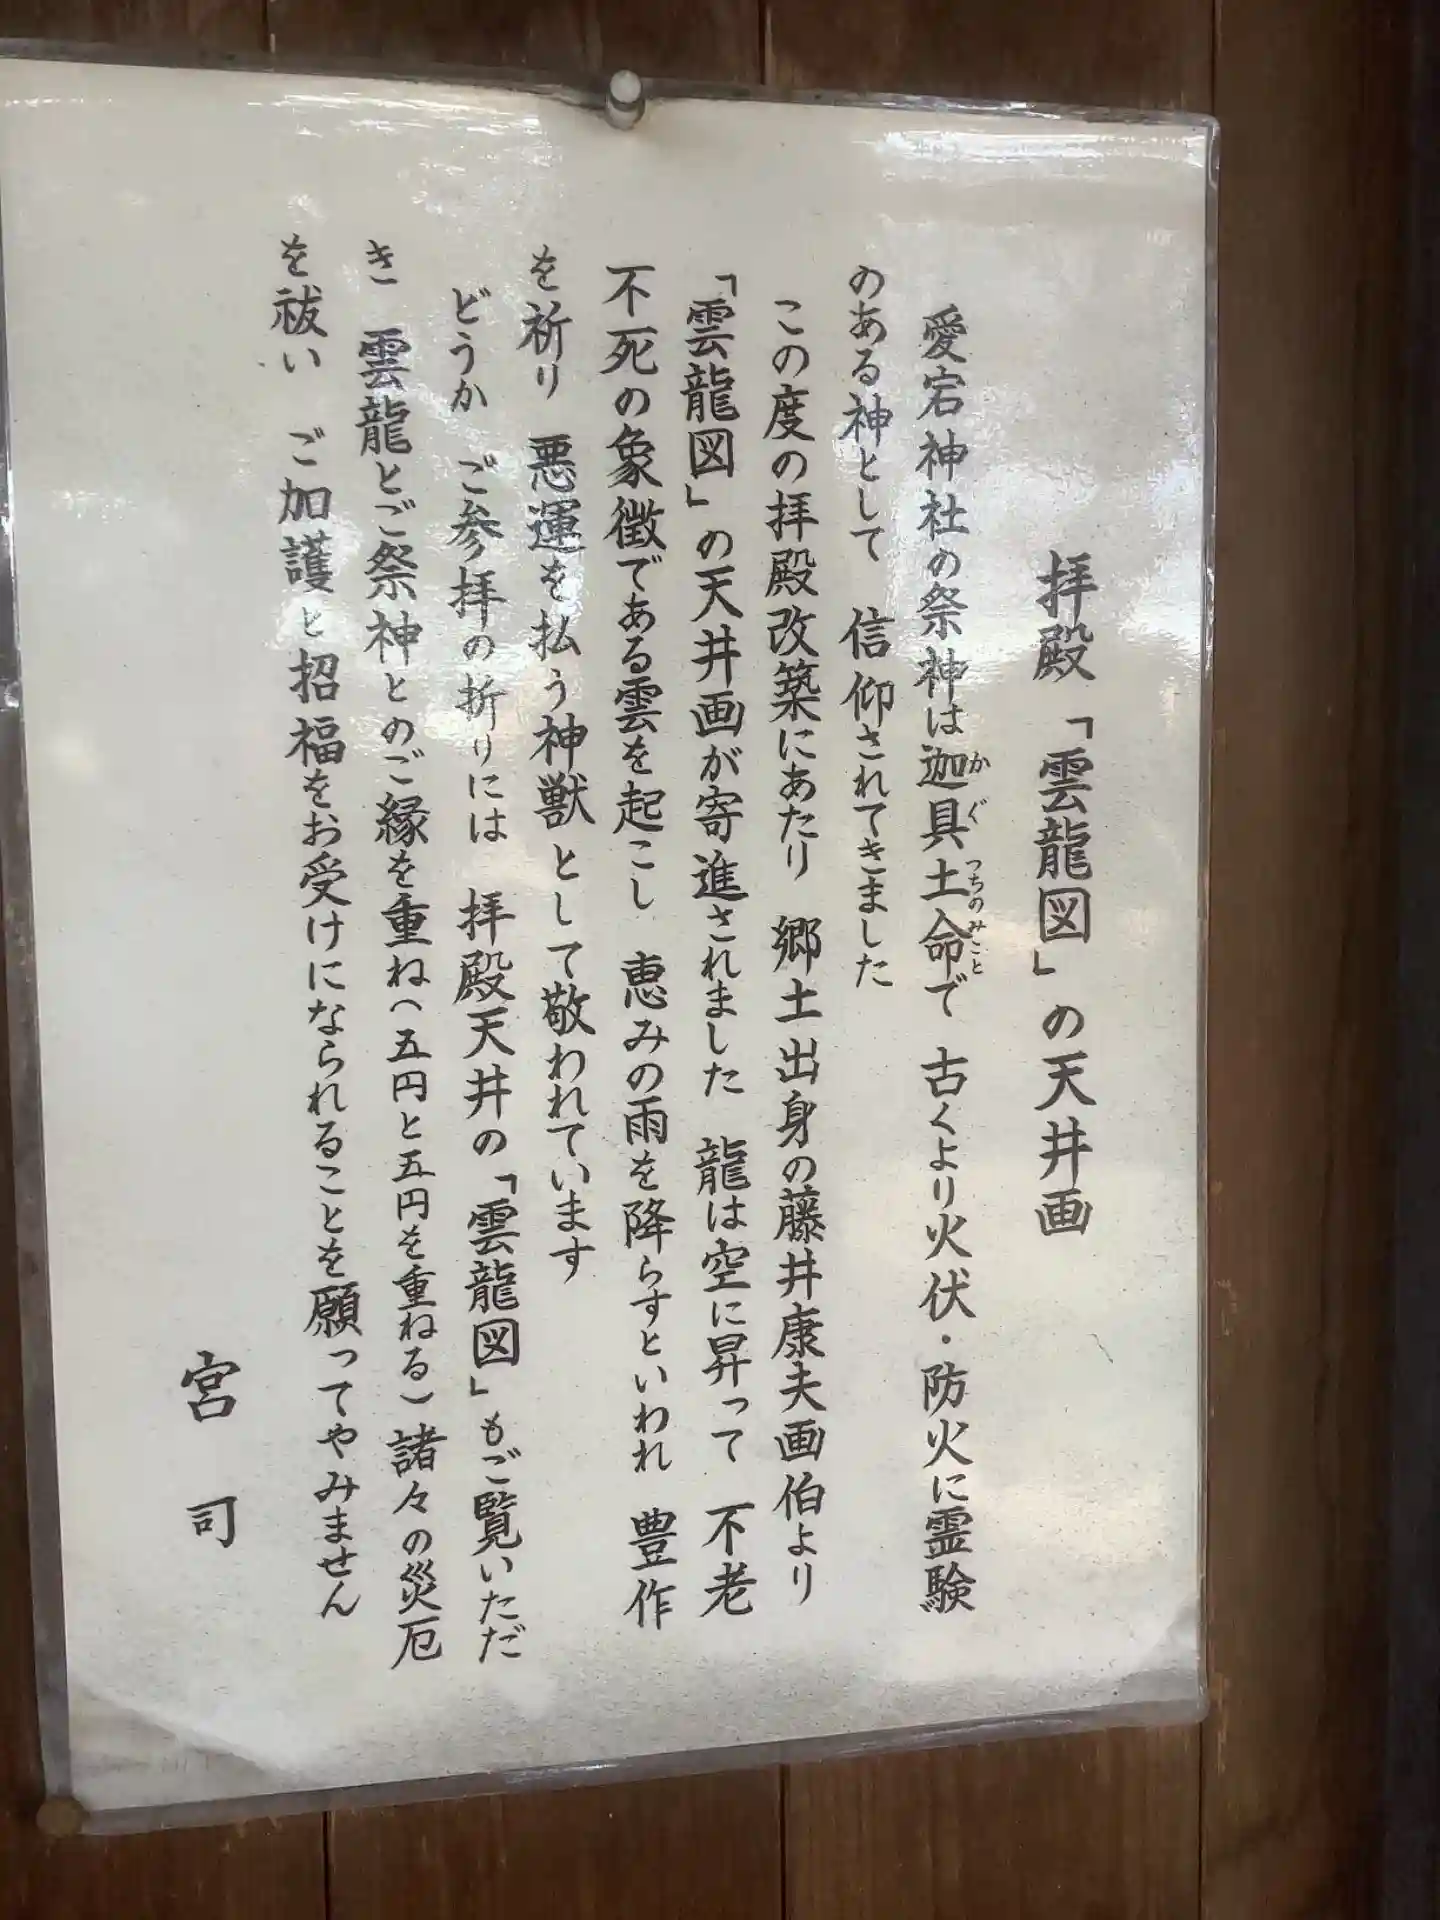 拝殿「雲龍図」の天井画
愛宕神社の祭神は迦具土命で 古くより火伏・防火に霊験
かぐつちのみこと
のある神として 信仰されてきました
この度の拝殿改築にあたり 郷土出身の藤井康夫画伯より
「雲龍図」の天井画が寄進されました 龍は空に昇って 不老
不死の象徴である雲を起こし 恵みの雨を降らすといわれ 豊作
を祈り 悪運を払う神獣として敬われています
どうか ご参拝の折りには 拝殿天井の「雲龍図」もご覧いただ
き 雲龍とご祭神とのご縁を重ね(五円と五円を重ねる)諸々の災厄
を祓い ご加護と招福をお受けになられることを願ってやみません
宮司